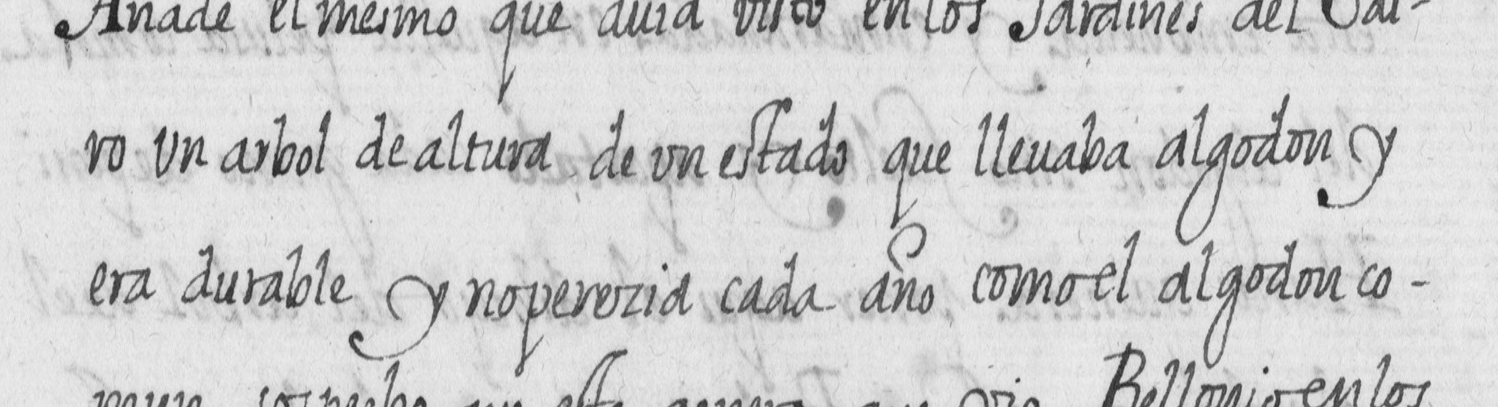 Añade el mesmo que auia visto en los Jardines del Cai-
ro un arbol de altura de vn estado que lleuaba algodon y
era durable y no perezia cada año como el algodon co-
mun sospecho que este genero que vio Bellonio en los